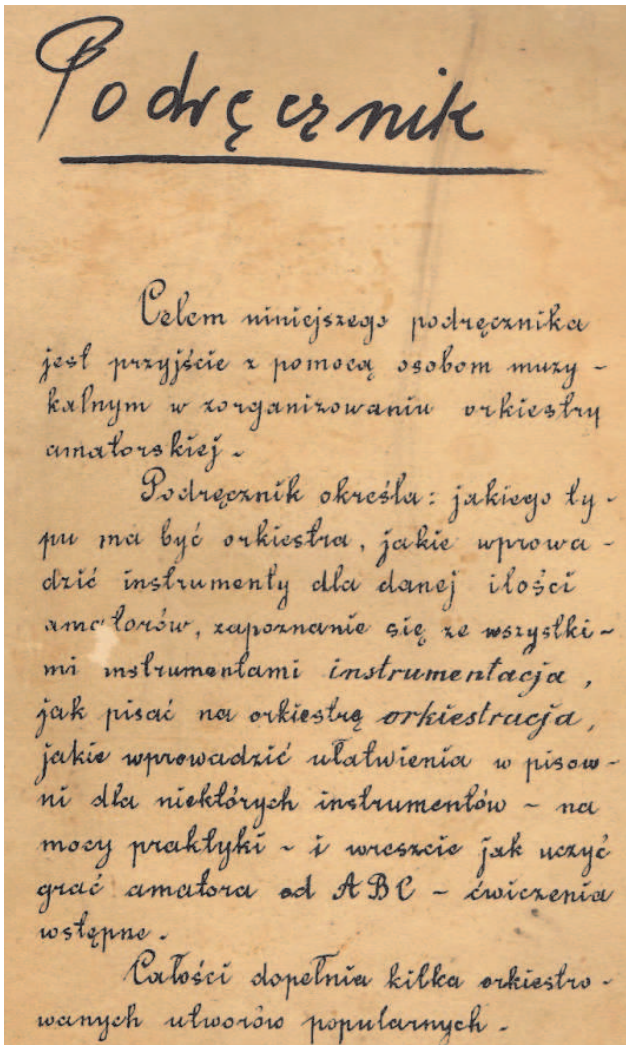 Podręcznik
Celem niniejszego podręcznika
jest przyjście z pomocą osobom muzy-
kalnym w zorganizowaniu orkiestry
amatorskiej.
Podręcznik określa: jakiego ty-
pu ma być orkiestra, jakie wprowa-
dzić instrumenty dla danej ilości
amatorów, zapoznanie się ze wszystki-
mi instrumentami instrumentacja,
jak pisać na orkiestrę orkiestracja,
jakie wprowadzić ułatwienia w pisow-
ni dla niektórych instrumentów - na
mocy praktyki - i wreszcie jak uczyć
grać amatora od ABC - ćwiczenia
wstępne.
Całości dopełnia kilka orkiestro-
wanych utworów popularnych.